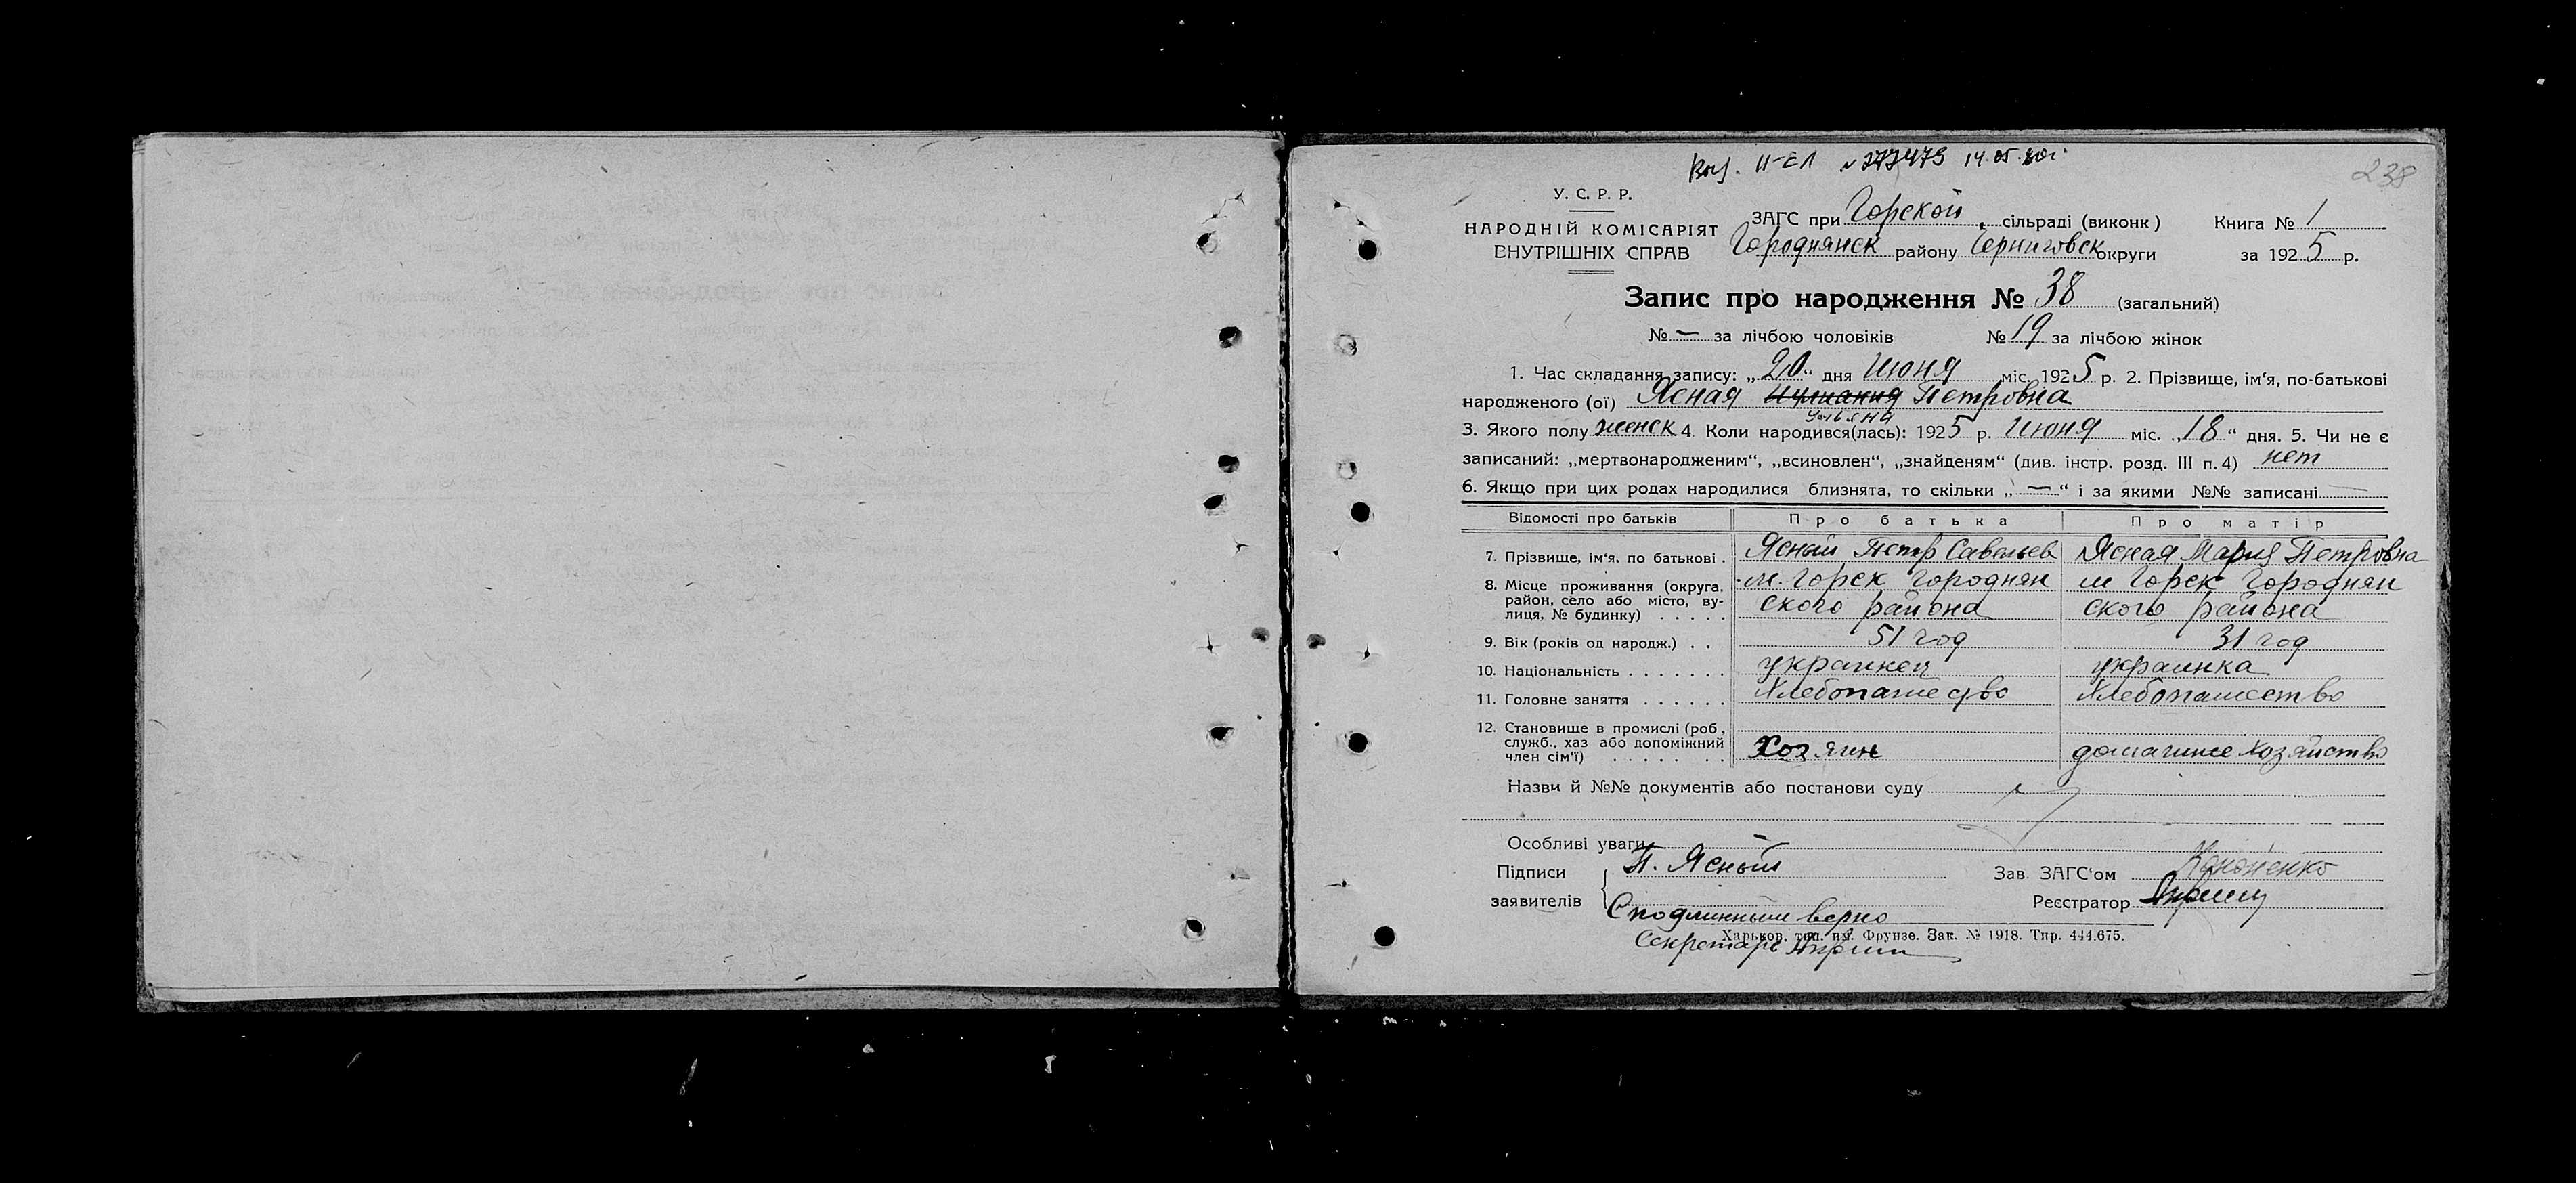 II-ЕЛ № 277473 14.05.
238
У. С. Р. Р.
НАРОДНІЙ КОМІСАРІЯТ
ВНУТРІШНІХ СПРАВ
ЗАГС при Горской сільраді (виконк)
Городнянск району Черниговск округи
Книга № 1
за 1925 р.
Запис про народження № 38 (загальний)
№ — за лічбою чоловіків № 19 за лічбою жінок
1. Час складання запису: „20“ дня Июня міс. 1925 р. 2. Прізвище, ім‘я, по-батькові
народженого (ої) Ясная Петровна
Ульяна
3. Якого полу женск 4. Коли народився(лась): 1925 р. Июня міс. „18“ дня. 5. Чи не є
записаний: „мертвонародженим“, „всиновлен“, „знайденям“ (див. інстр. розд. III п. 4) нет
6. Якщо при цих родах народилися близнята, то скільки „—“ і за якими №№ записані —
Відомості про батьків Про батька Про матір
7. Прізвище, ім‘я, по батькові . Ясный Петр Савельев Ясная Мария Петровна
8. Місце проживання (округа, м. Горск Городнян м Горск Городнян
район, село або місто, ву-
лиця, № будинку) . . . . . ского района ского района
9. Вік (років од народж.) . . 51 год 31 год
10. Національність . . . . . . . украинец украинка
11. Головне заняття . . . . . . Хлебопашество Хлебопашество
12. Становище в промислі (роб.,
служб., хаз або допоміжний
член сім‘ї) . . . . . . . Хозяин домашнее хозяйство
Назви й №№ документів або постанови суду
Особливі уваги
Підписи П. Ясный Зав. ЗАГС‘ом Кононенко
заявителів Реєстратор
С подлинным верно
Харьков, тип. им. Фрунзе. Зак. № 1918. Тир. 444.675.
Секретарь